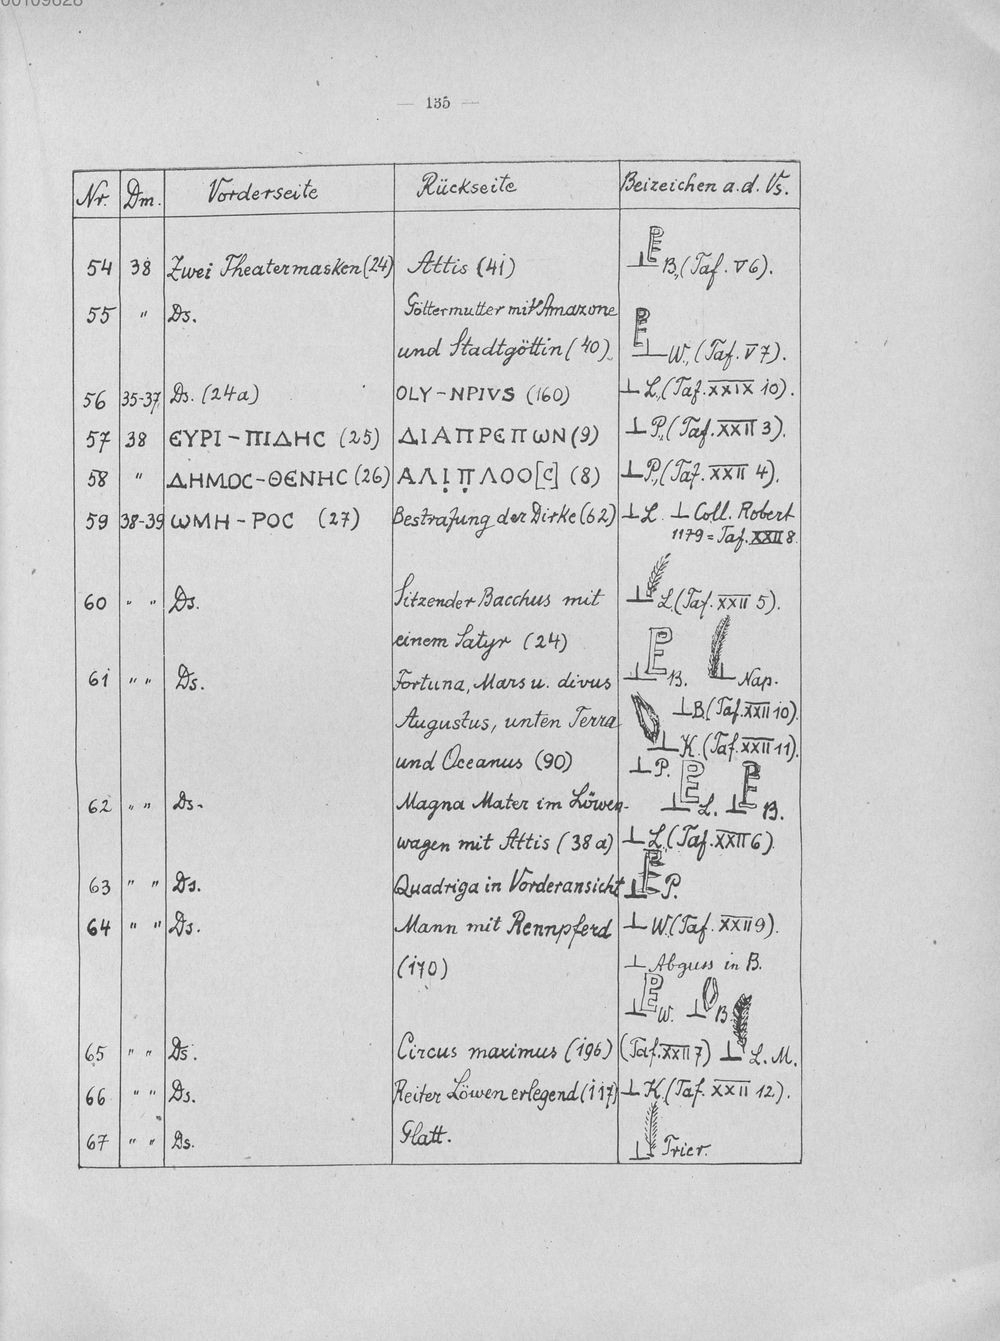 00109828
— 135 —
Nr. Dm. Vorderseite Rückseite Beizeichen a.d. Vs.
54 38 Zwei Theatermasken (24) Attis (41) ⊥ B, (Taf. V 6).
55 " Ds. Göttermutter mit Amazone
und Stadtgöttin (40). ⊥ W, (Taf. V 7).
56 35-37 Ds. (24a) OLY-NPIVS (160) ⊥ L, (Taf. XXIX 10).
57 38 ЄΥΡΙ-ΠΙΔΗϹ (25) ΔΙΑΠΡЄΠWΝ (9) ⊥ P, (Taf. XXII 3).
58 " ΔΗΜΟϹ-ΘЄΝΗϹ (26) ΑΛΙ̣Π̣ΛΟΟ[Ϲ] (8) ⊥ P, (Taf. XXII 4).
59 38-39 WΜΗ-ΡΟϹ (27) Bestrafung der Dirke (62) ⊥ L. ⊥ Coll. Robert
1179 = Taf. XXII 8.
60 " " Ds. Sitzender Bacchus mit ⊥ L. (Taf. XXII 5).
einem Satyr (24)
61 " " Ds. Fortuna, Mars u. divus ⊥ B. ⊥ Nap.
Augustus, unten Terra ⊥ B. (Taf. XXII 10).
⊥ K. (Taf. XXII 11).
und Oceanus (90) ⊥ P.
62 " " Ds. Magna Mater im Löwen- ⊥ L. ⊥ B.
wagen mit Attis (38a) ⊥ L. (Taf. XXII 6).
63 " " Ds. Quadriga in Vorderansicht ⊥ P.
64 " " Ds. Mann mit Rennpferd ⊥ W. (Taf. XXII 9).
(170) ⊥ Abguss in B.
⊥ W. ⊥ B.
65 " " Ds. Circus maximus (196) (Taf. XXII 7) ⊥ L. M.
66 " " Ds. Reiter Löwen erlegend (117) ⊥ K. (Taf. XXII 12.).
67 " " Ds. Glatt. ⊥ Trier.